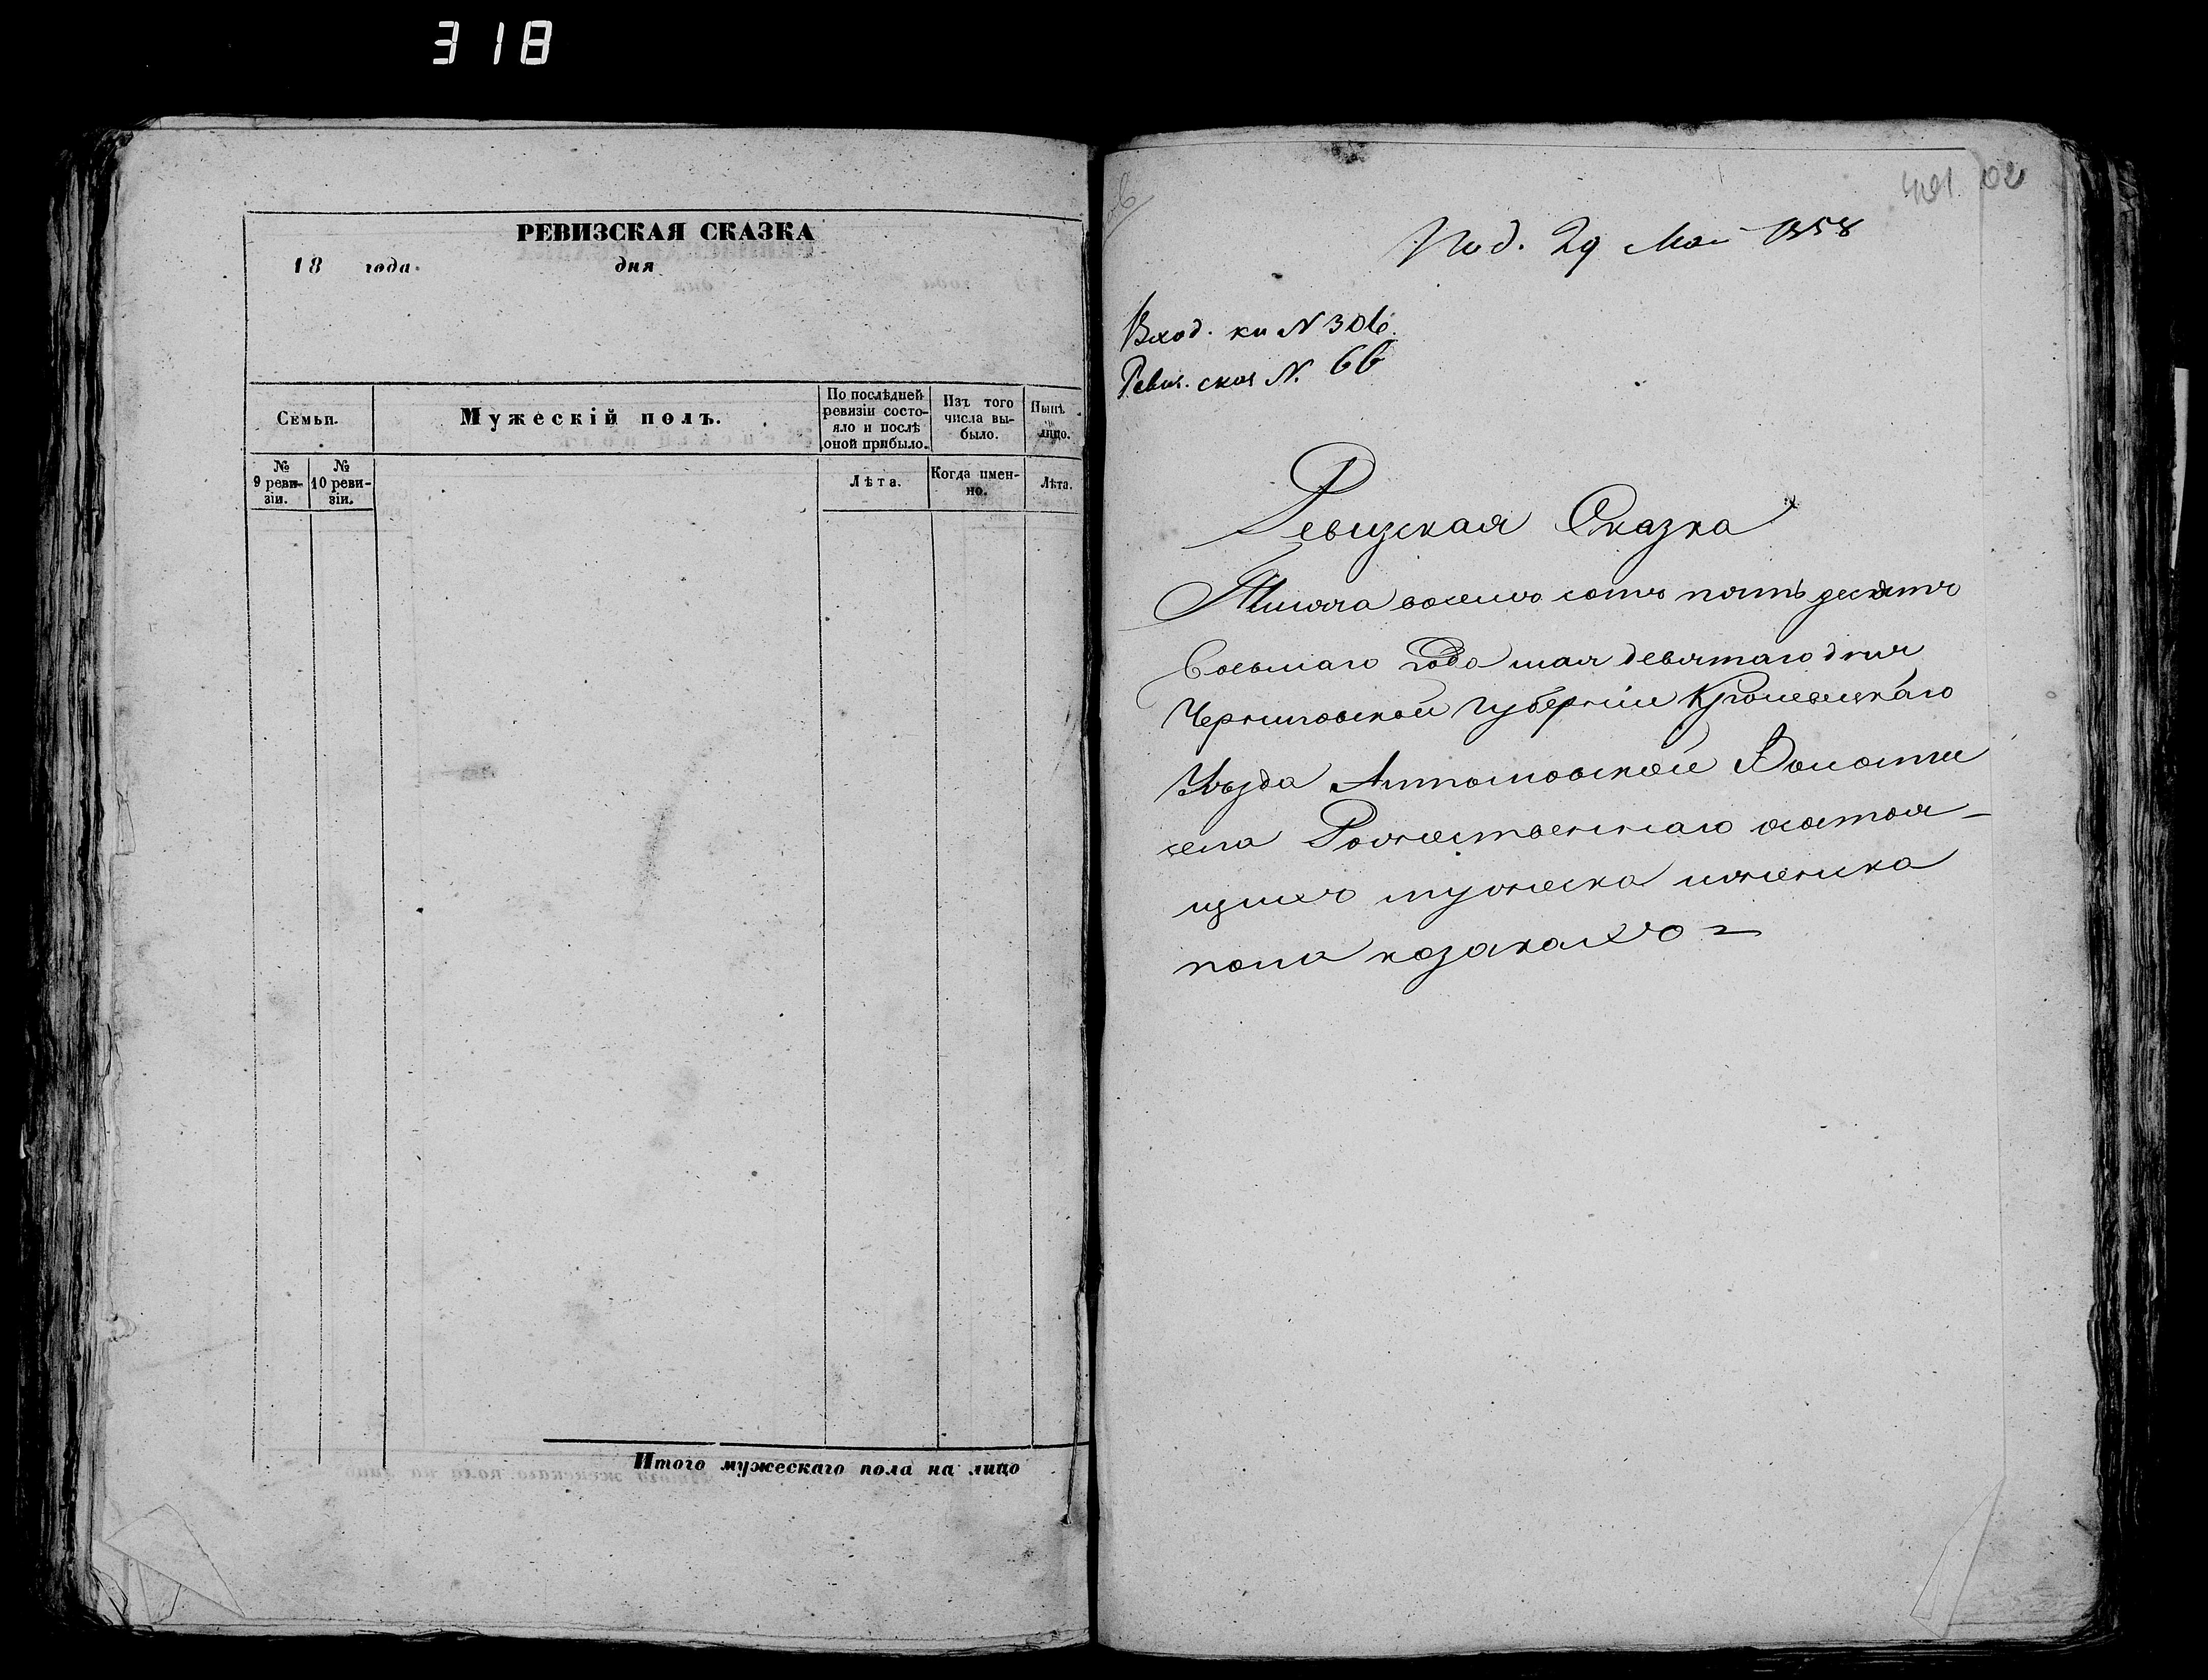 318
РЕВИЗСКАЯ СКАЗКА
18 года дня
Семьи.
Мужескій полъ.
По послѣдней ревизіи состояло и послѣ оной прибыло.
Изъ того числа выбыло.
Нынѣ лицо.
№ 9 ревизіи.
№ 10 ревизіи.
Лѣта.
Когда именно.
Лѣта.
Итого мужескаго пола на лицо
Под. 29 Мая 1858
Вход. кн N 306.
Ревиз. сказ N. 66
Ревизская Сказка
Тысяча восемь сотъ пять десятъ
Восьмаго года мая девятаго дня
Черниговской губерніи Кролевецкаго
Уѣзда Алтыновской Волости
села Рожественскаго состоя-
щихъ мужеска и женска
пола козакахъ